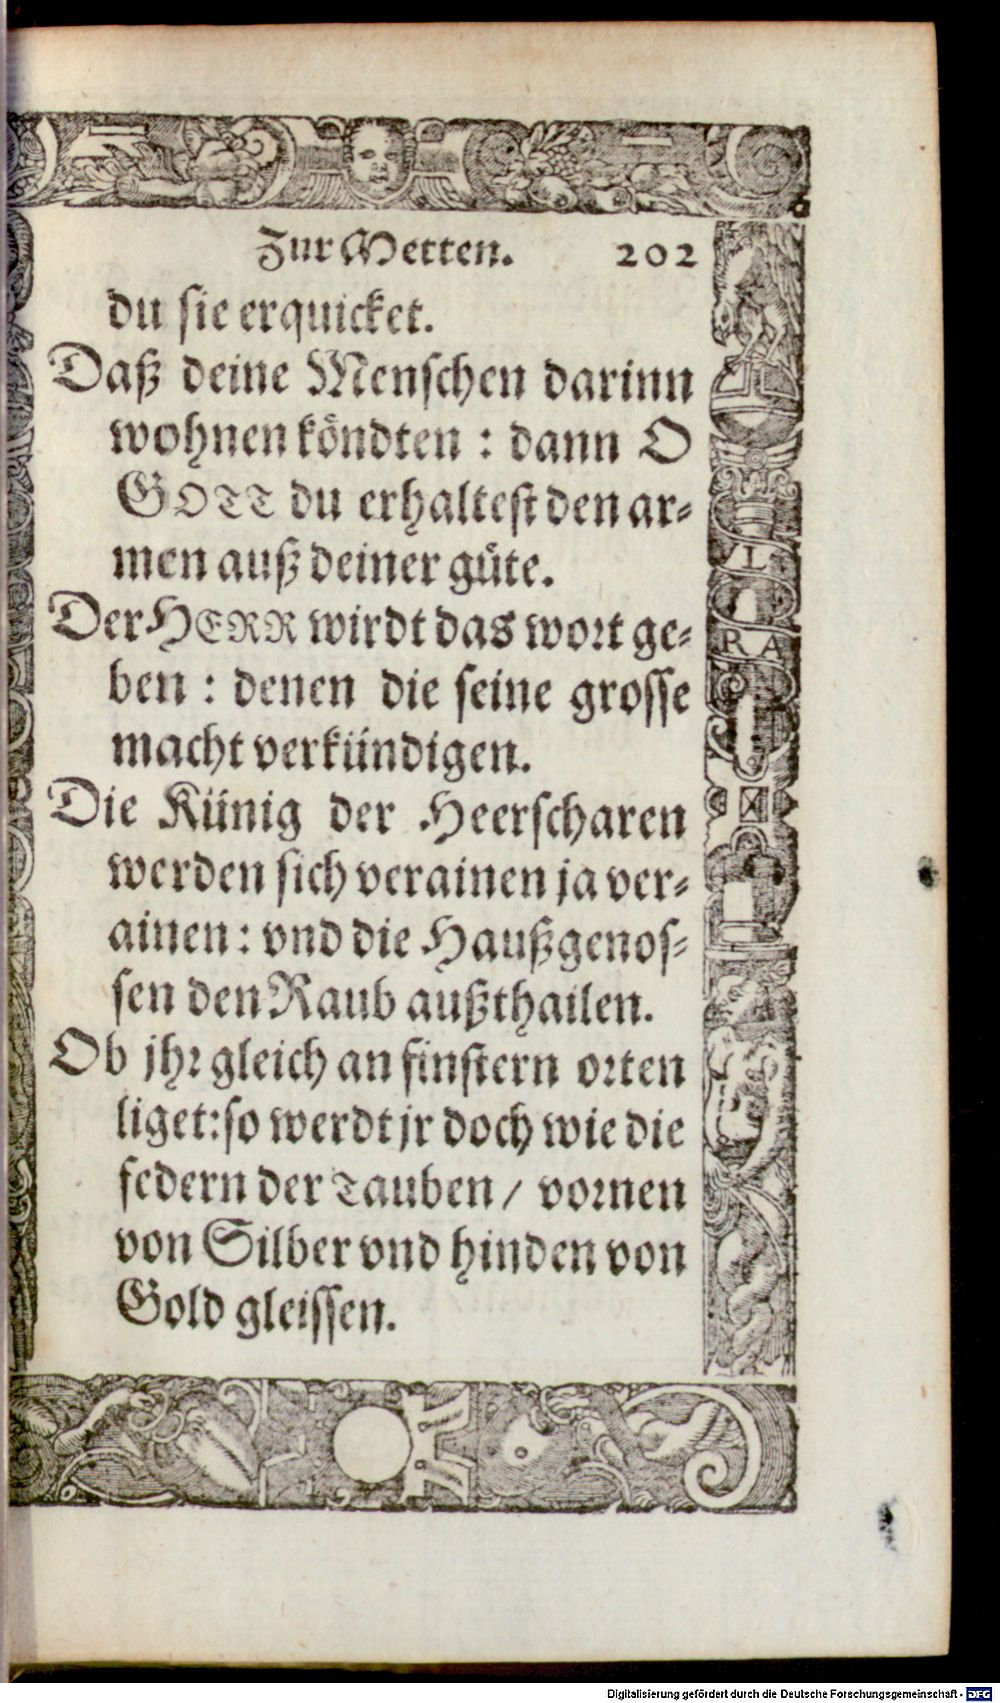 Zur Metten. 202
du sie erquicket.
Daß deine Menschen darinn
wohnen köndten : dann O
GOTT du erhaltest den ar-
men auß deiner güte.
Der HERR wirdt das wort ge-
ben : denen die seine grosse
macht verkündigen.
Die Künig der Heerscharen
werden sich verainen ja ver-
ainen : vnd die Haußgenos-
sen den Raub außthailen.
Ob jhr gleich an finstern orten
liget: so werdt jr doch wie die
federn der Tauben / vornen
von Silber vnd hinden von
Gold gleissen.
L
R A
Digitalisierung gefördert durch die Deutsche Forschungsgemeinschaft - DFG